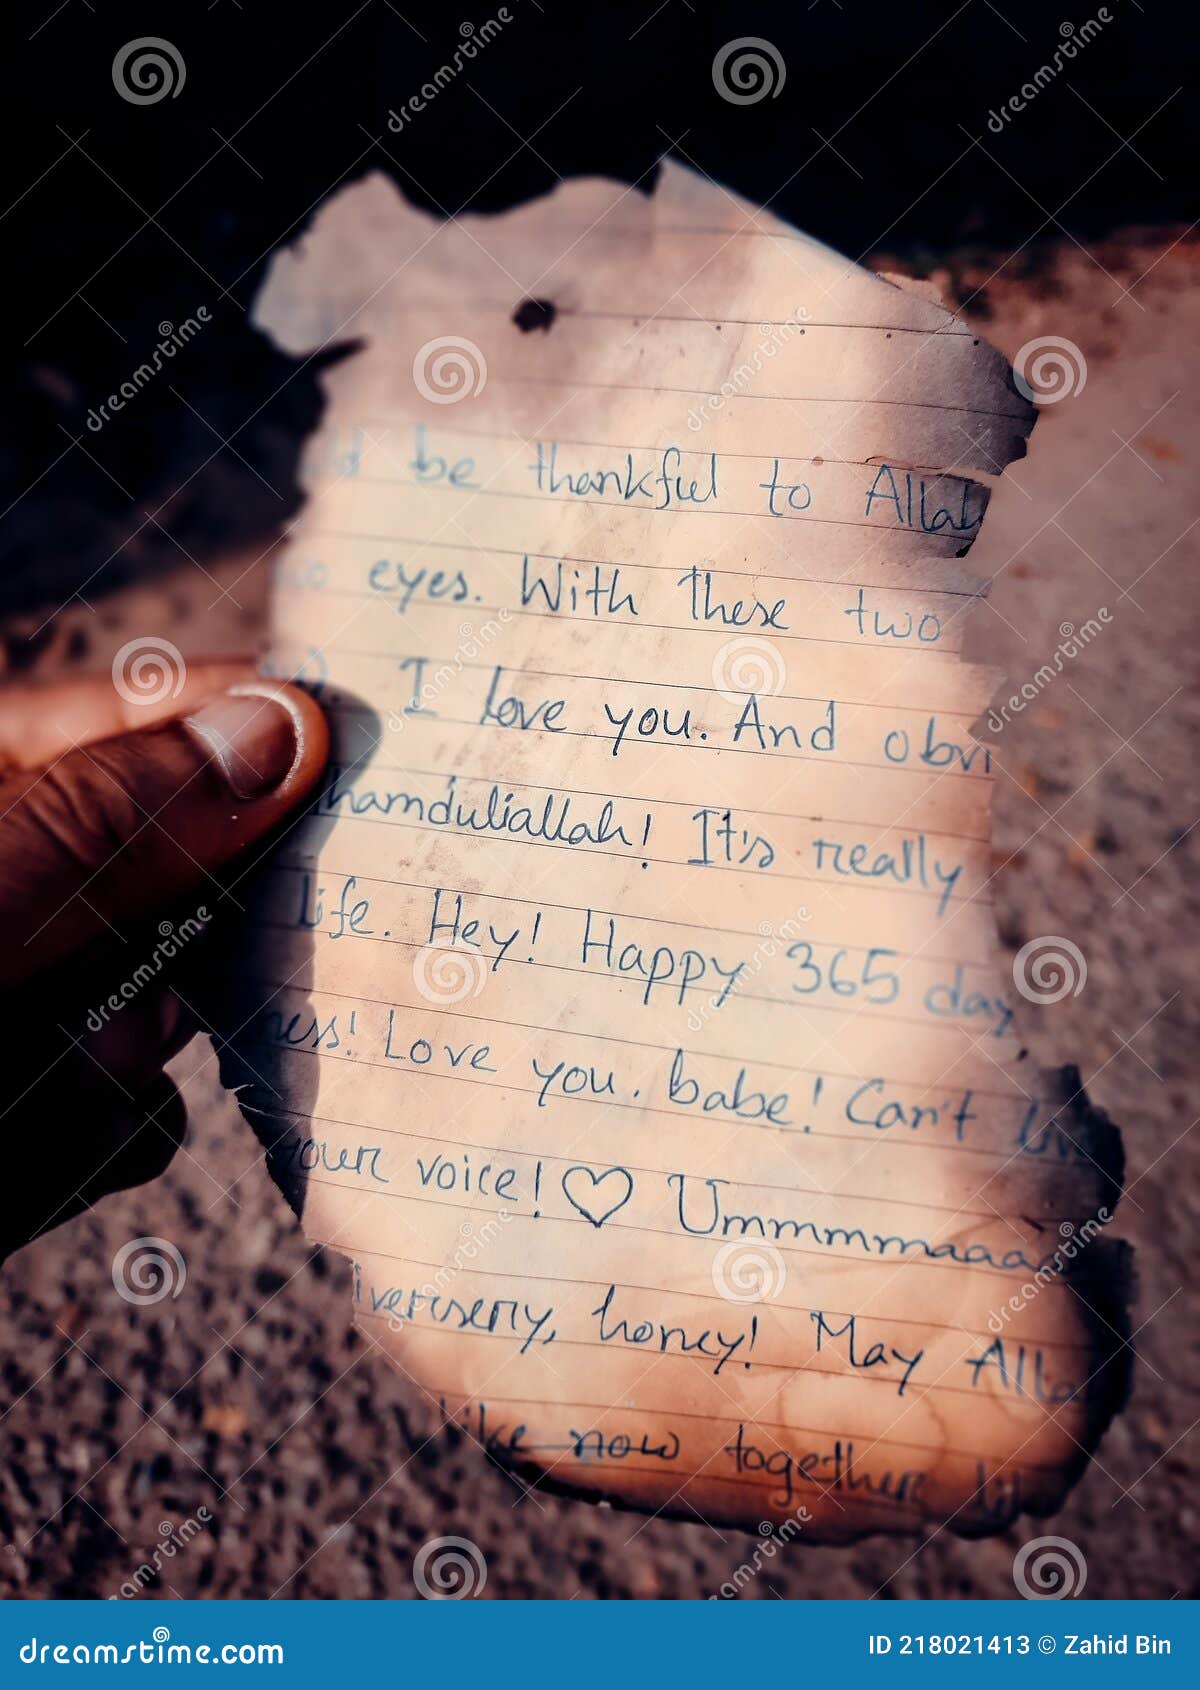 be thankful to Allah
eyes. With these two
I love you. And obvi
hamduliallah! It's really
life. Hey! Happy 365 day
ness! Love you. babe! Can't
your voice! ♡ Ummmmaaaa
iversery, honey! May Alla
like now together
dreamstime.com
ID 218021413 © Zahid Bin